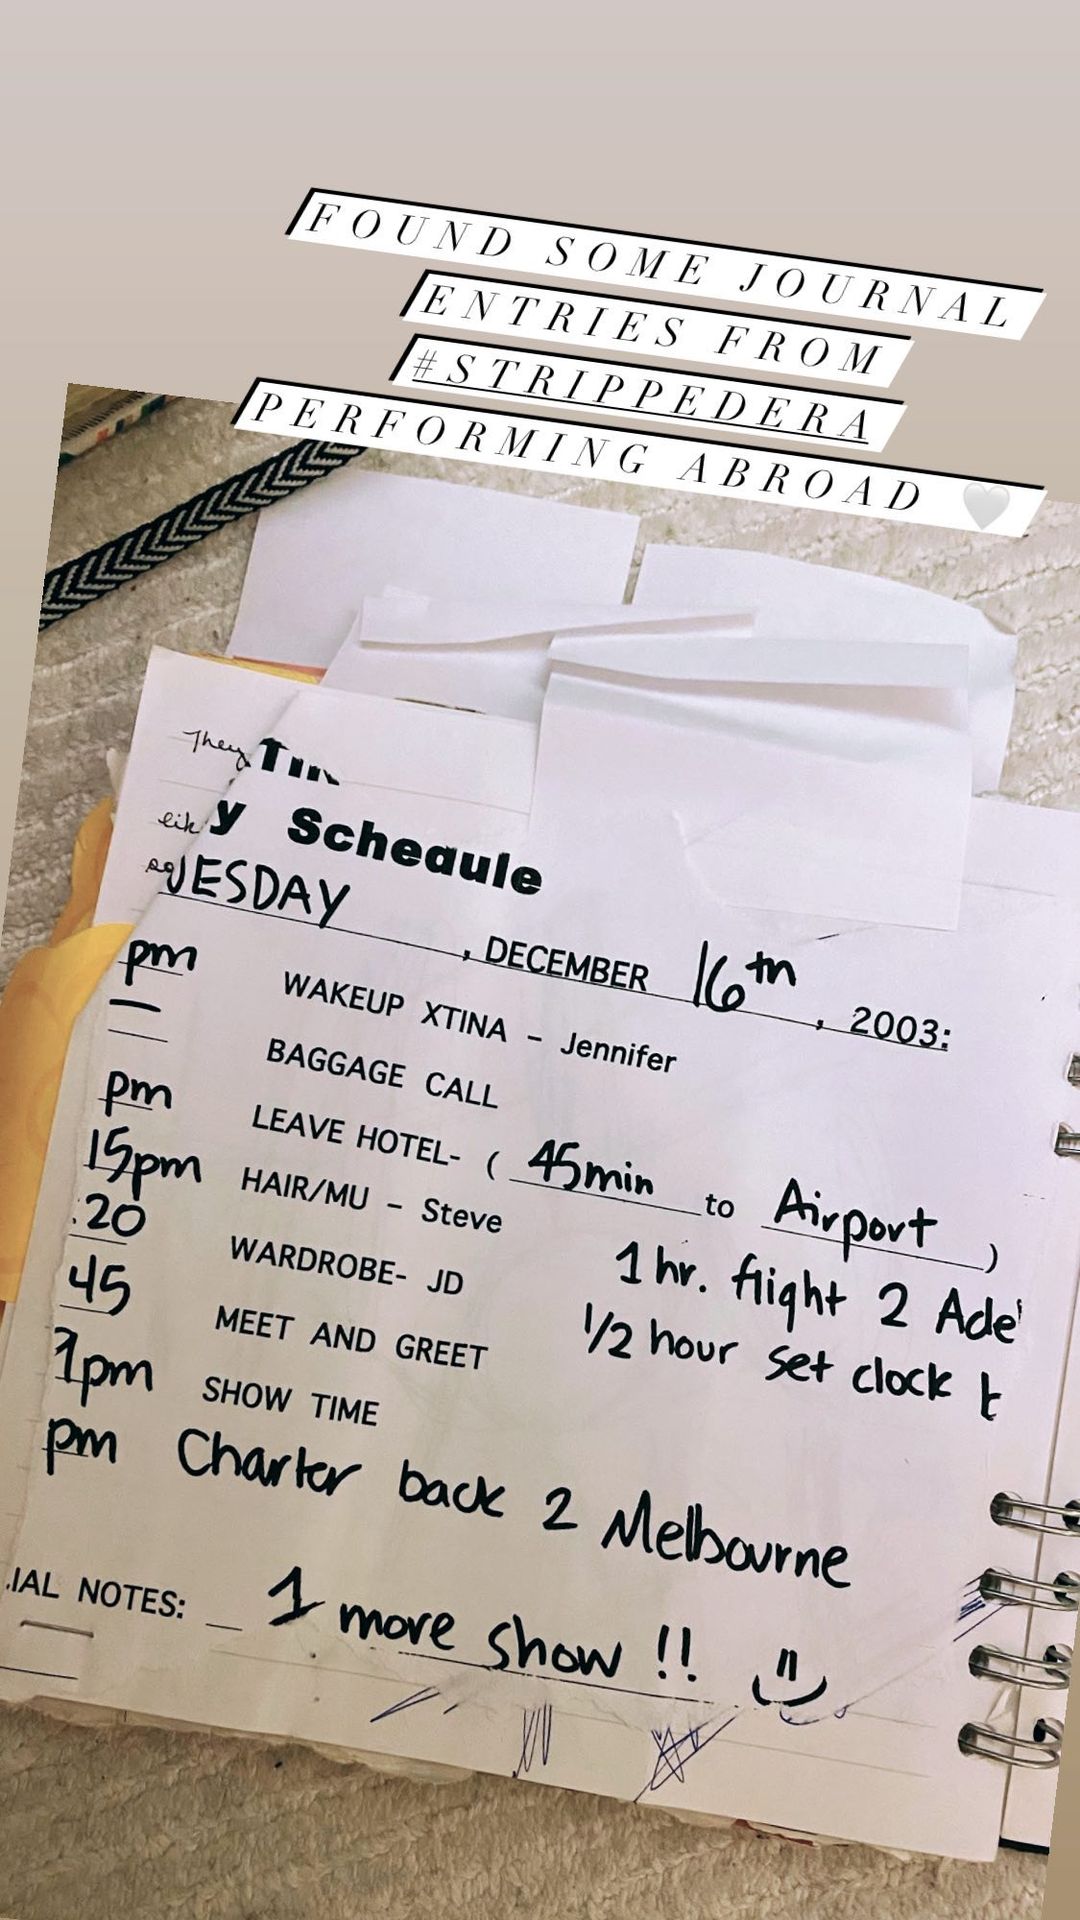 FOUND SOME JOURNAL
ENTRIES FROM
#STRIPPEDERA
PERFORMING ABROAD 🤍
They
y Schedule
UESDAY, DECEMBER 16th, 2003:
pm WAKEUP XTINA - Jennifer
— BAGGAGE CALL
pm LEAVE HOTEL- ( 45min to Airport )
15pm HAIR/MU - Steve
1 hr. flight 2 Ade
:20 WARDROBE- JD
1/2 hour set clock t
45 MEET AND GREET
pm SHOW TIME
pm Charter back 2 Melbourne
IAL NOTES: 1 more show !!